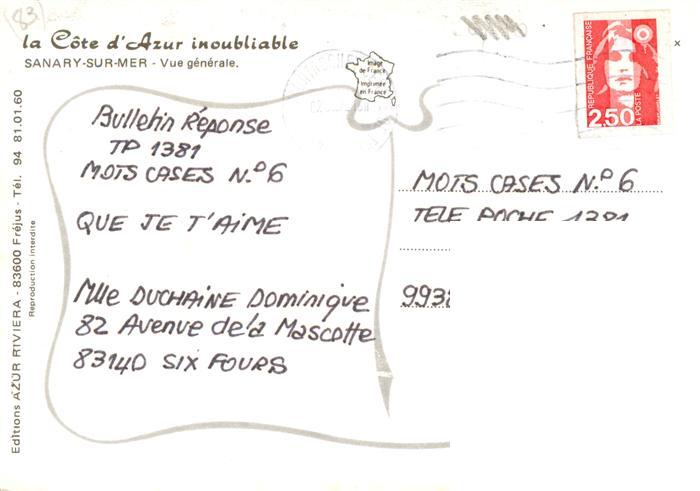 83
la Côte d'Azur inoubliable
SANARY-SUR-MER - Vue générale.
Image
de France
Imprimée
en France
RÉPUBLIQUE FRANÇAISE
2,50
LA POSTE
Bulletin Réponse
TP 1381
MOTS CASES N.º 6
QUE JE T'AIME
Mlle DUCHAINE Dominique
82 Avenue de la Mascotte
83140 SIX FOURS
MOTS CASES N.º 6
TELE POCHE 1381
993
Editions AZUR RIVIERA - 83600 Fréjus - Tél. 94 81.01.60
Reproduction interdite